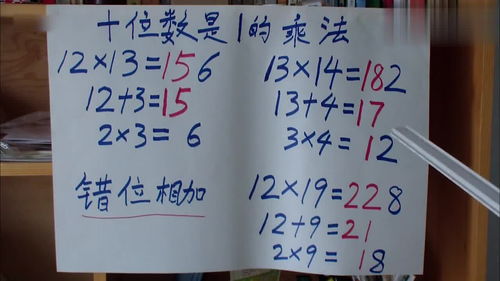 十位数是1的乘法
12×13=156
12+3=15
2×3= 6
错位相加
13×14=182
13+4=17
3×4= 12
12×19=228
12+9=21
2×9= 18